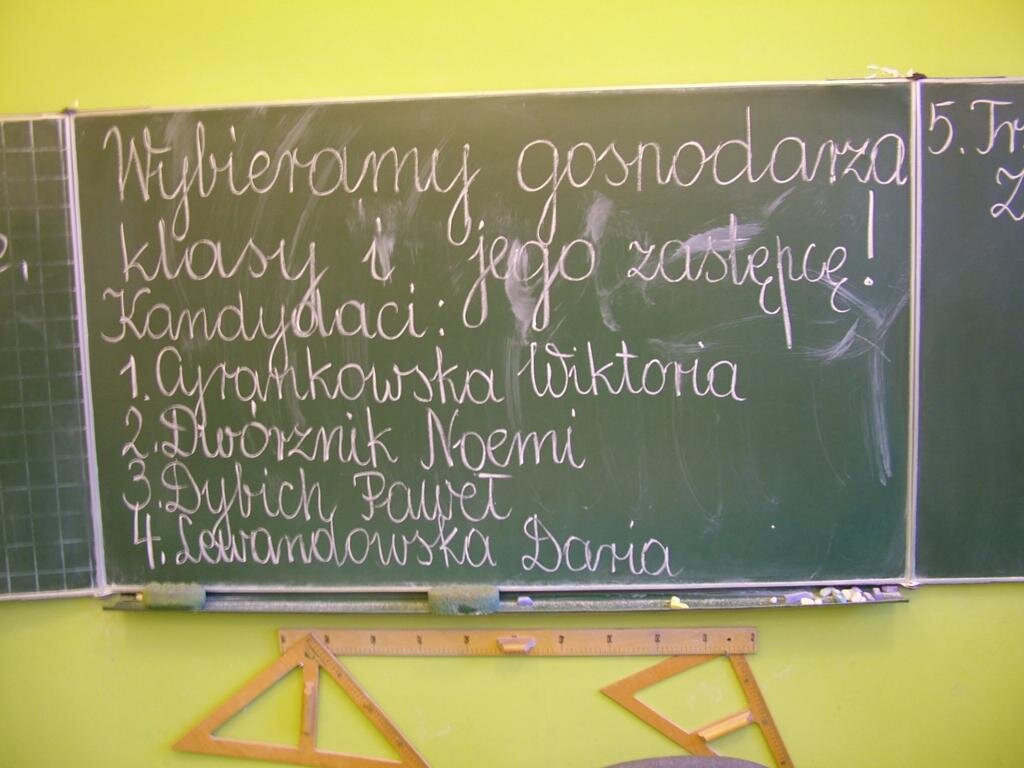 Wybieramy gospodarza
klasy i jego zastępcę!
Kandydaci:
1. Cyrankowska Wiktoria
2. Dwórznik Noemi
3. Dybich Paweł
4. Lewandowska Daria
5.